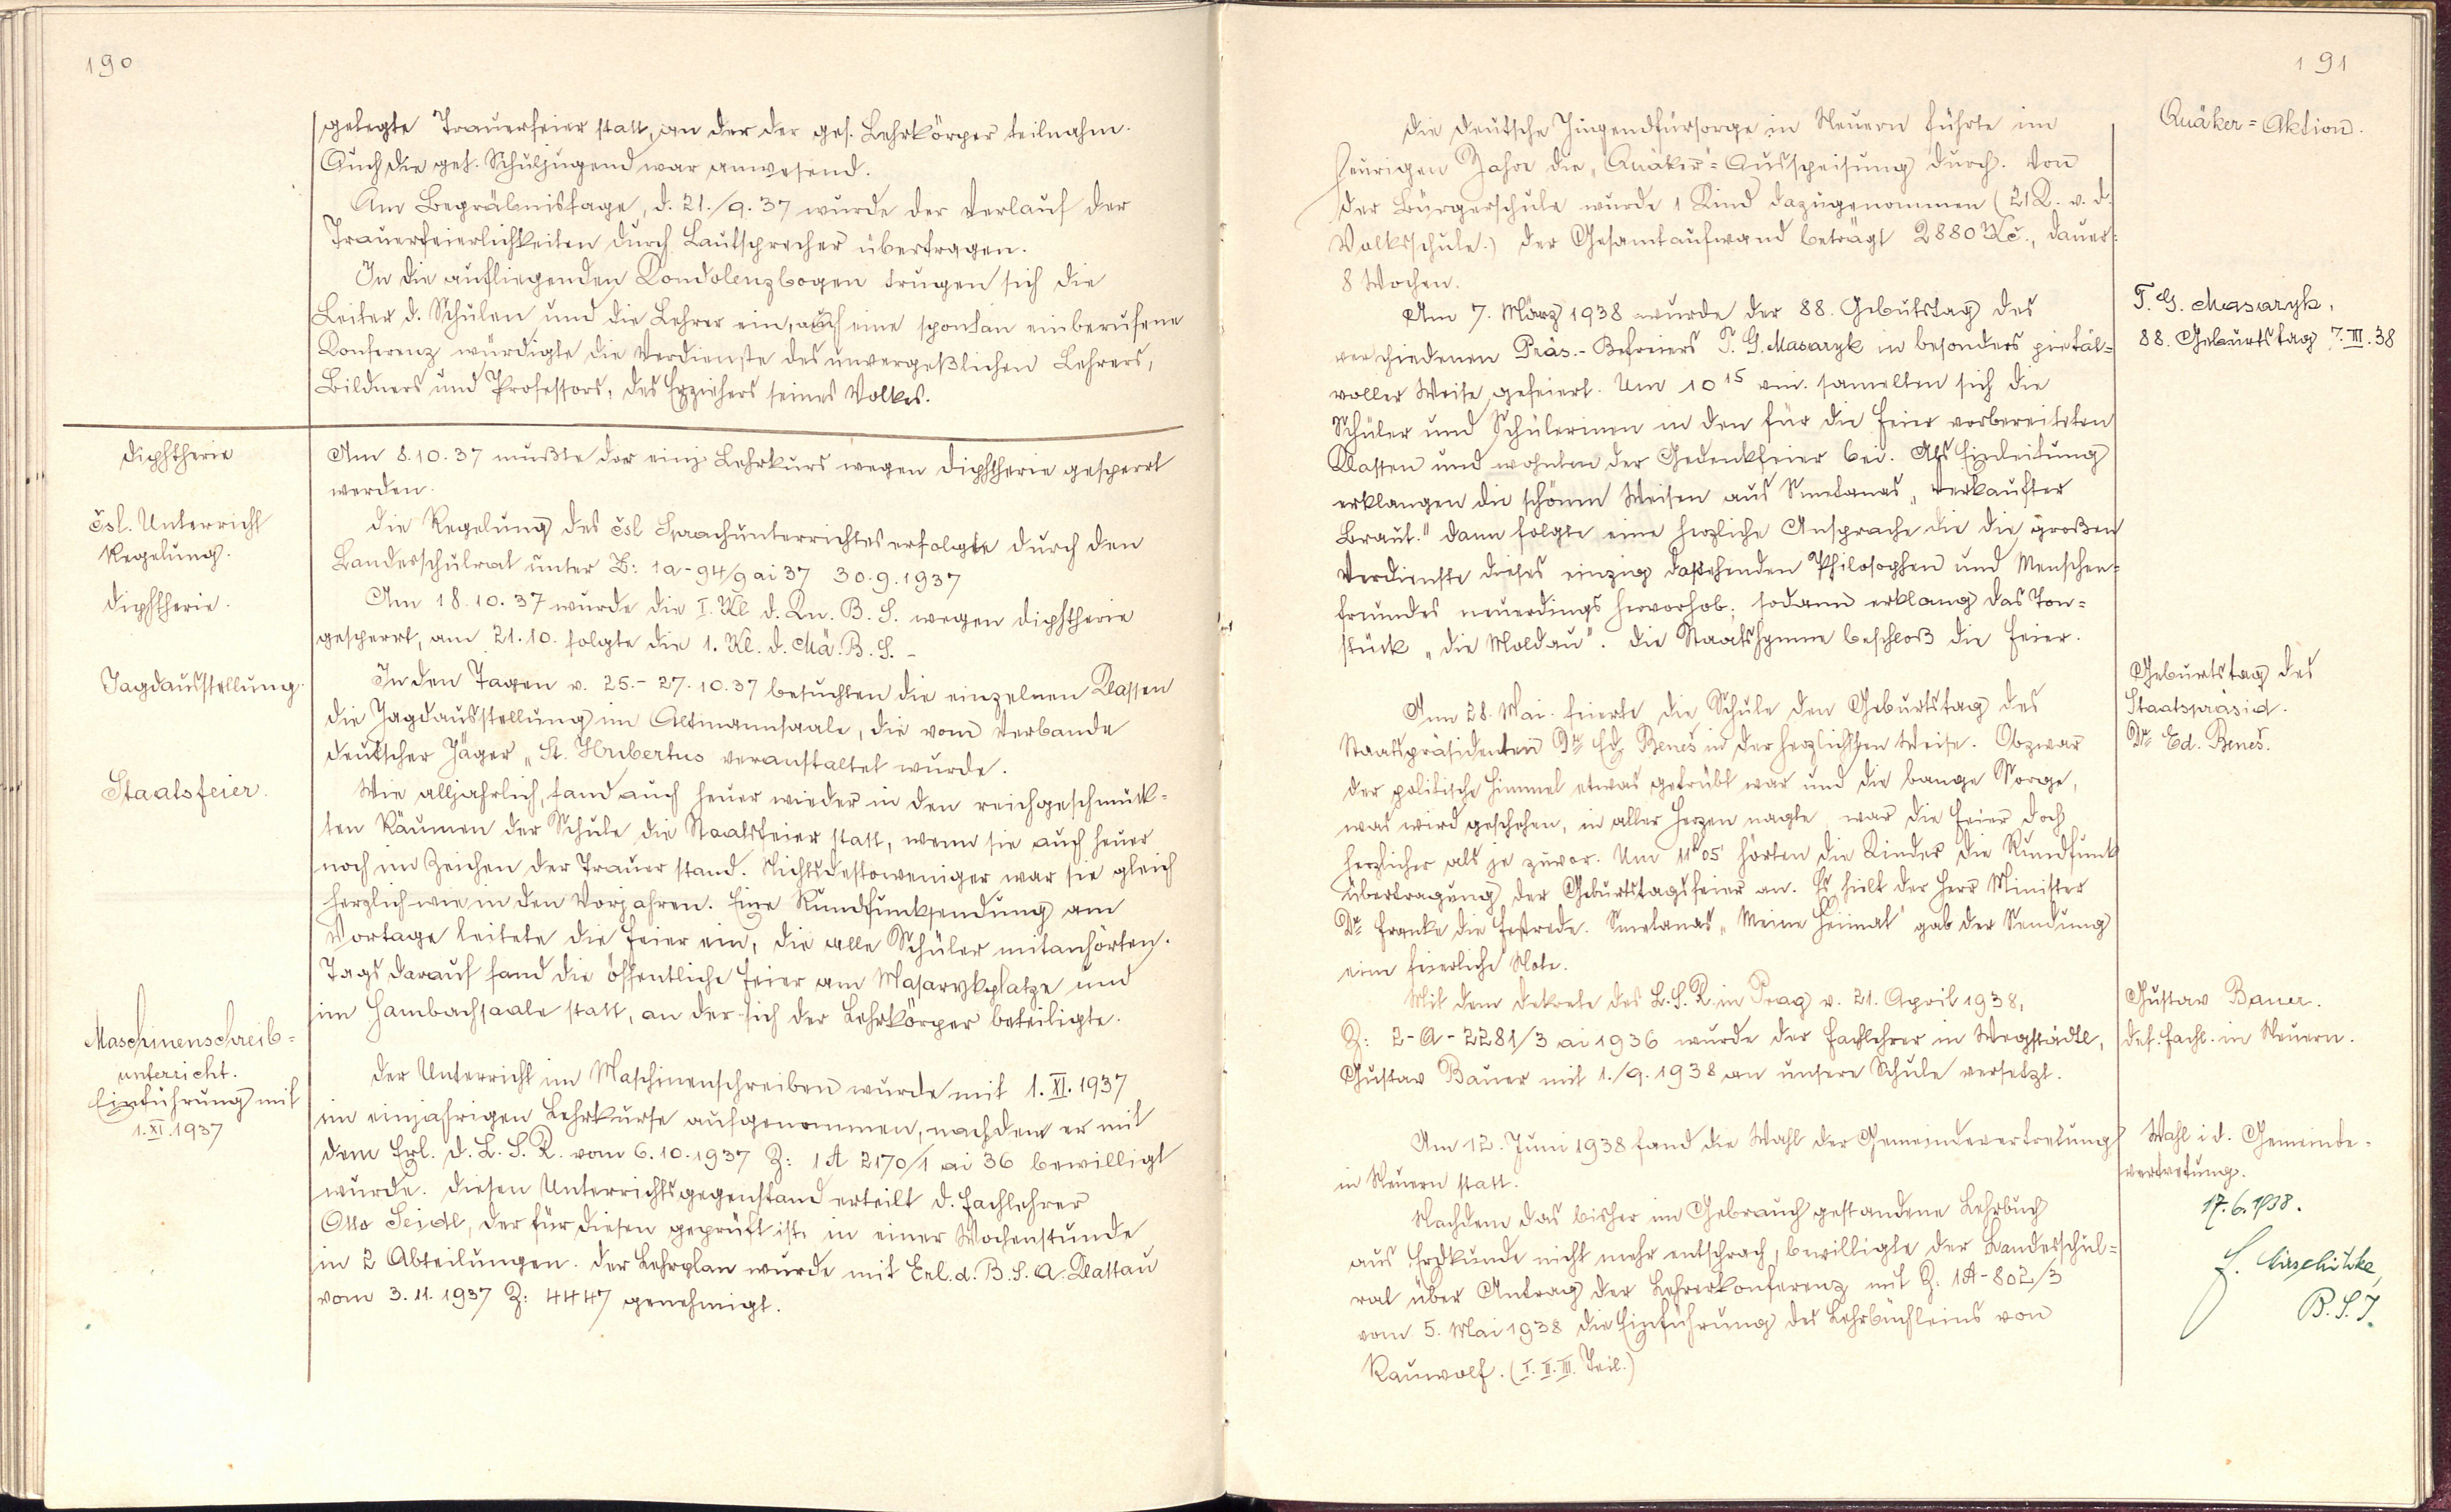 190
gelegte Trauerfeier statt, an der der ges. Lehrkörper teilnahm.
Auch die ges. Schuljugend war anwesend.
Am Begräbnistage, d. 21./9.37 wurde der Verlauf der
Trauerfeierlichkeiten durch Lautsprecher übertragen.
In die aufliegenden Kondolenzbogen trugen sich die
Leiter d. Schulen und die Lehrer ein, auch eine spontan einberufene
Konferenz würdigte die Verdienste des unvergeßlichen Lehrers,
Bildners und Professors, des Erziehers seines Volkes.
Diphtherie
Am 8.10.37 mußte der einj. Lehrkurs wegen Diphtherie gesperrt
werden.
čsl. Unterricht
Regelung.
Die Regelung des čsl Sprachunterrichtes erfolgte durch den
Landesschulrat unter Z: 1a-94/9 ai 37 30.9.1937
Diphtherie.
Am 18.10.37 wurde die I. Kl d. Kn. B. S. wegen Diphtherie
gesperrt, am 21.10. folgte die 1. Kl. d. Mä. B. S. -
Jagdausstellung.
In den Tagen v. 25.-27.10.37 besuchten die einzelnen Klassen
die Jagdausstellung im Altmannsaale, die vom Verbande
deutscher Jäger „St. Hubertus veranstaltet wurde.
Staatsfeier.
Wie alljahrlich, fand auch heuer wieder in den reichgeschmück=
ten Räumen der Schule die Staatsfeier statt, wenn sie auch heuer
noch im Zeichen der Trauer stand. Nichtsdestoweniger war sie gleich
herzlich wie in den Vorjahren. Eine Rundfunksendung am
Vortage leitete die Feier ein, die alle Schüler mitanhörten.
Tags darauf fand die öffentliche Feier am Masarykplatze und
im Hambachsaale statt, an der sich der Lehrkörper beteiligte.
Maschinenschreib=
unterricht.
Einführung mit
1.XI.1937
Der Unterricht im Maschinenschreiben wurde mit 1.XI.1937
im einjahrigen Lehrkurse aufgenommen, nachdem er mit
dem Erl. d. L. S. R. vom 6.10.1937 Z: 1A 2170/1 ai 36 bewilligt
wurde. Diesen Unterrichtsgegenstand erteilt d. Fachlehrer
Otto Seidl, der für diesen geprüft ist, in einer Wochenstunde
in 2 Abteilungen. Der Lehrplan wurde mit Erl. d. B. S. A. Klattau
vom 3.11.1937 Z: 4447 genehmigt.
191
Quäker=Aktion.
Die deutsche Jugendfürsorge in Neuern führte im
heurigen Jahre die „Quäker"=Ausspeisung durch. Von
der Bürgerschule wurde 1 Kind dazugenommen (21 K. v. d.
Volksschule.) Der Gesamtaufwand beträgt 2880 Kč., Dauer=
8 Wochen.
T. G. Masaryk,
88. Geburtstag 7.III.38
Am 7. März 1938 wurde der 88. Gebutstag des
verschiedenen Präs.-Befreiers T. G. Masaryk in besonders pietät=
voller Weise gefeiert. Um 10 15 vm. samelten sich die
Schüler und Schülerinen in den für die Feier vorbereiteten
Klassen und wohnten der Gedenkfeier bei. Als Einleitung
erklangen die schönen Weisen aus Smetanas „Verkaufter
Braut." Dann folgte eine herzliche Ansprache die die großen
Verdienste dieses einzig dastehenden Philosophen und Menschen=
freundes neuerdings hervorhob; sodann erklang das Ton=
stück „Die Moldau". Die Staatshymne beschloß die Feier.
Geburtstag des
Staatspräsid.
Dr. Ed. Beneš.
Am 28. Mai feierte die Schule den Geburtstag des
Staatspräsidenten Dr Ed. Beneš in der herzlichsten Weise. Obzwar
der politische Himmel etwas getrübt war und die bange Sorge,
was wird geschehen, in aller Herzen nagte, war die Feier doch
herzlicher als je zuvor. Um 11h05' hörten die Kinder die Rundfunk
übertragung der Geburtstagsfeier an. Es hielt der Herr Minister
Dr. Franke die Festrede. Smetanas „Meine Heimat" gab der Sendung
eine feierliche Note.
Gustav Bauer.
def. Fachl. in Neuern.
Mit dem Dekrete des L. S. R. in Prag v. 21. April 1938,
Z: 2-A-2281/3 ai 1936 wurde der Fachlehrer in Wegstädtl,
Gustav Bauer mit 1./9.1938 an unsere Schule versetzt.
Wahl i d. Gemeinde=
vertretung.
Am 12. Juni 1938 fand die Wahl der Gemeindevertretung
in Neuern statt.
Nachdem das bisher im Gebrauch gestandene Lehrbuch
aus Erdkunde nicht mehr entsprach, bewilligte der Landesschul=
rat über Antrag der Lehrerkonferenz mit Z: 1A-802/3
vom 5. Mai 1938 die Einführung des Lehrbüchleins von
Rauwolf. (I. II. III. Teil.)
17.6.1938.
B. S. I.